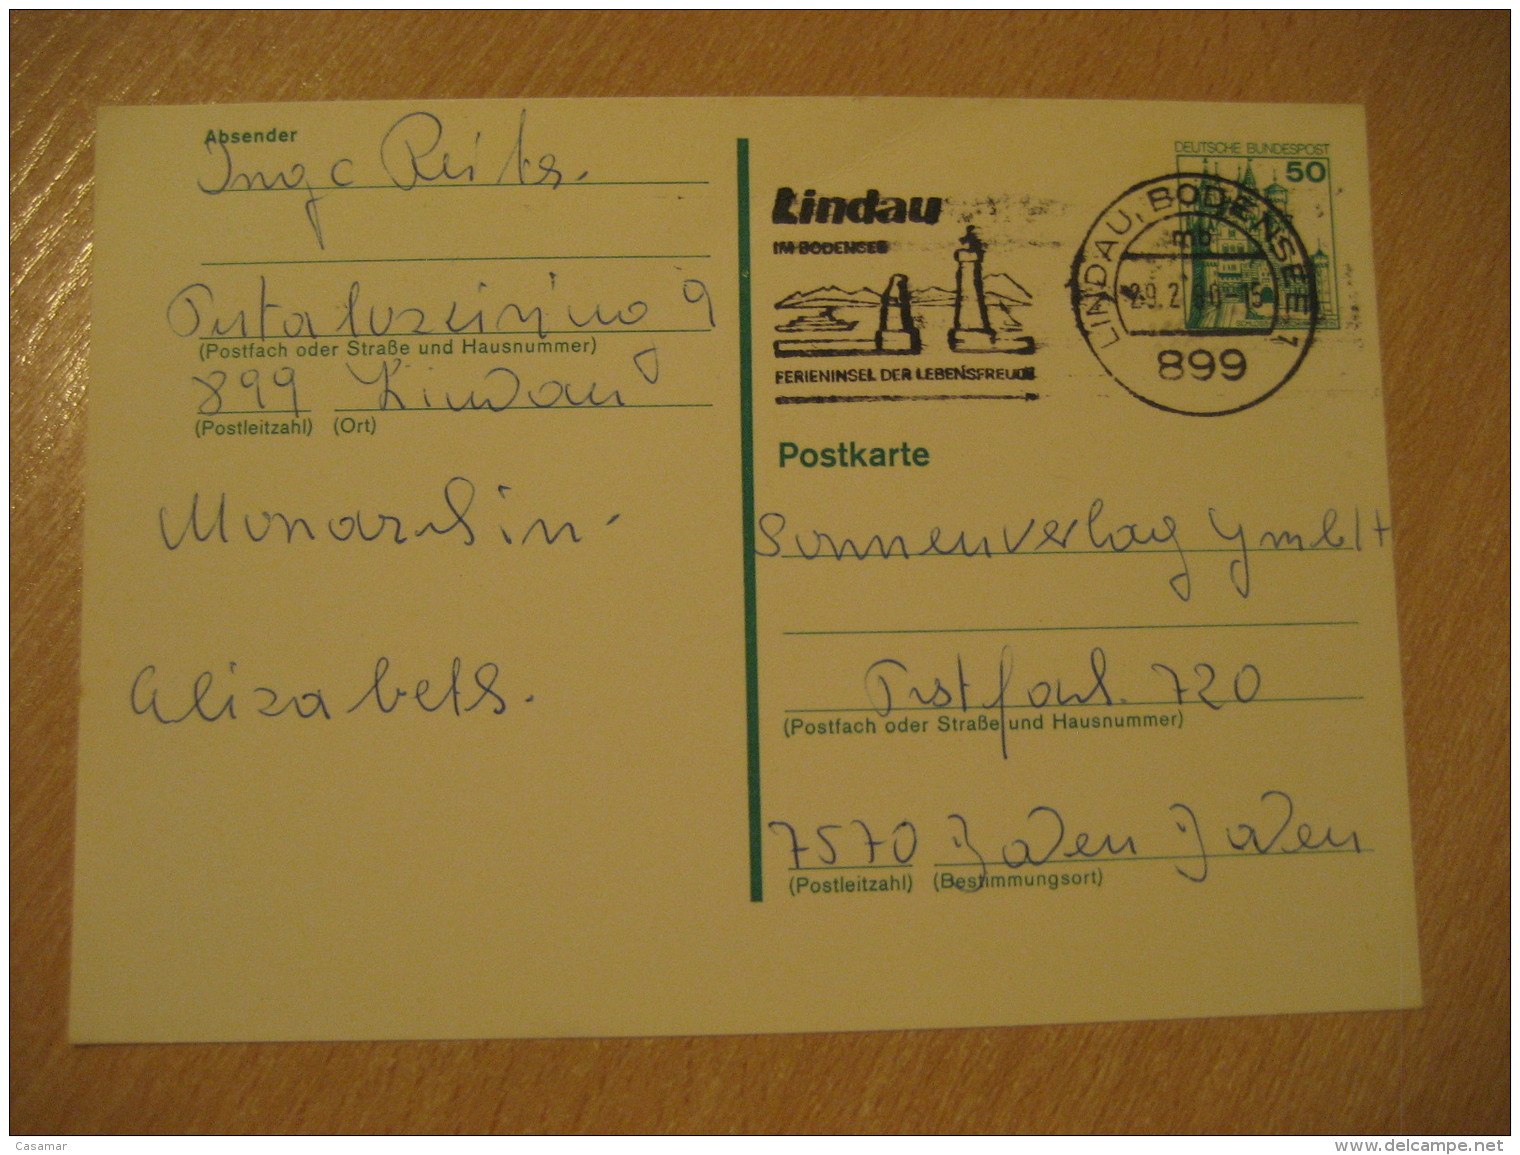 Absender
Inge
(Postfach oder Straße und Hausnummer)
899 Lindau
(Postleitzahl) (Ort)
Monarchin.
Elizabeth.
Lindau
IM BODENSEE
FERIENINSEL DER LEBENSFREUDE
DEUTSCHE BUNDESPOST
50
LINDAU, BODENSEE 1
mb
29.2.80-15
899
Postkarte
Sonnenverlag GmbH
Postfach. 720
(Postfach oder Straße und Hausnummer)
7570 Baden Baden
(Postleitzahl) (Bestimmungsort)
Casamar
delcampe.net